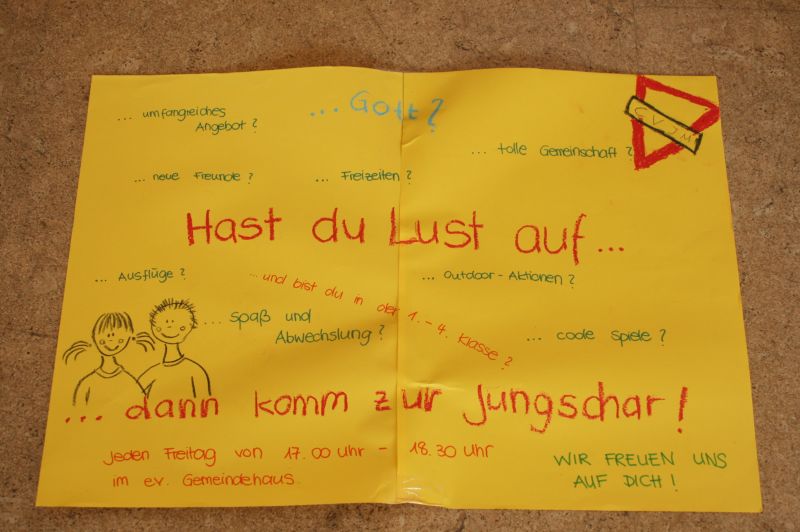 ... umfangreiches
Angebot?
... Gott?
CVJM
... tolle Gemeinschaft?
... neue Freunde?
... Freizeiten?
Hast du Lust auf...
... Ausflüge?
... und bist du in der 1. - 4. Klasse?
... outdoor-Aktionen?
... Spaß und
Abwechslung?
... coole Spiele?
... dann komm zur Jungschar!
Jeden Freitag von 17.00 Uhr - 18.30 Uhr
im ev. Gemeindehaus
WIR FREUEN UNS
AUF DICH!